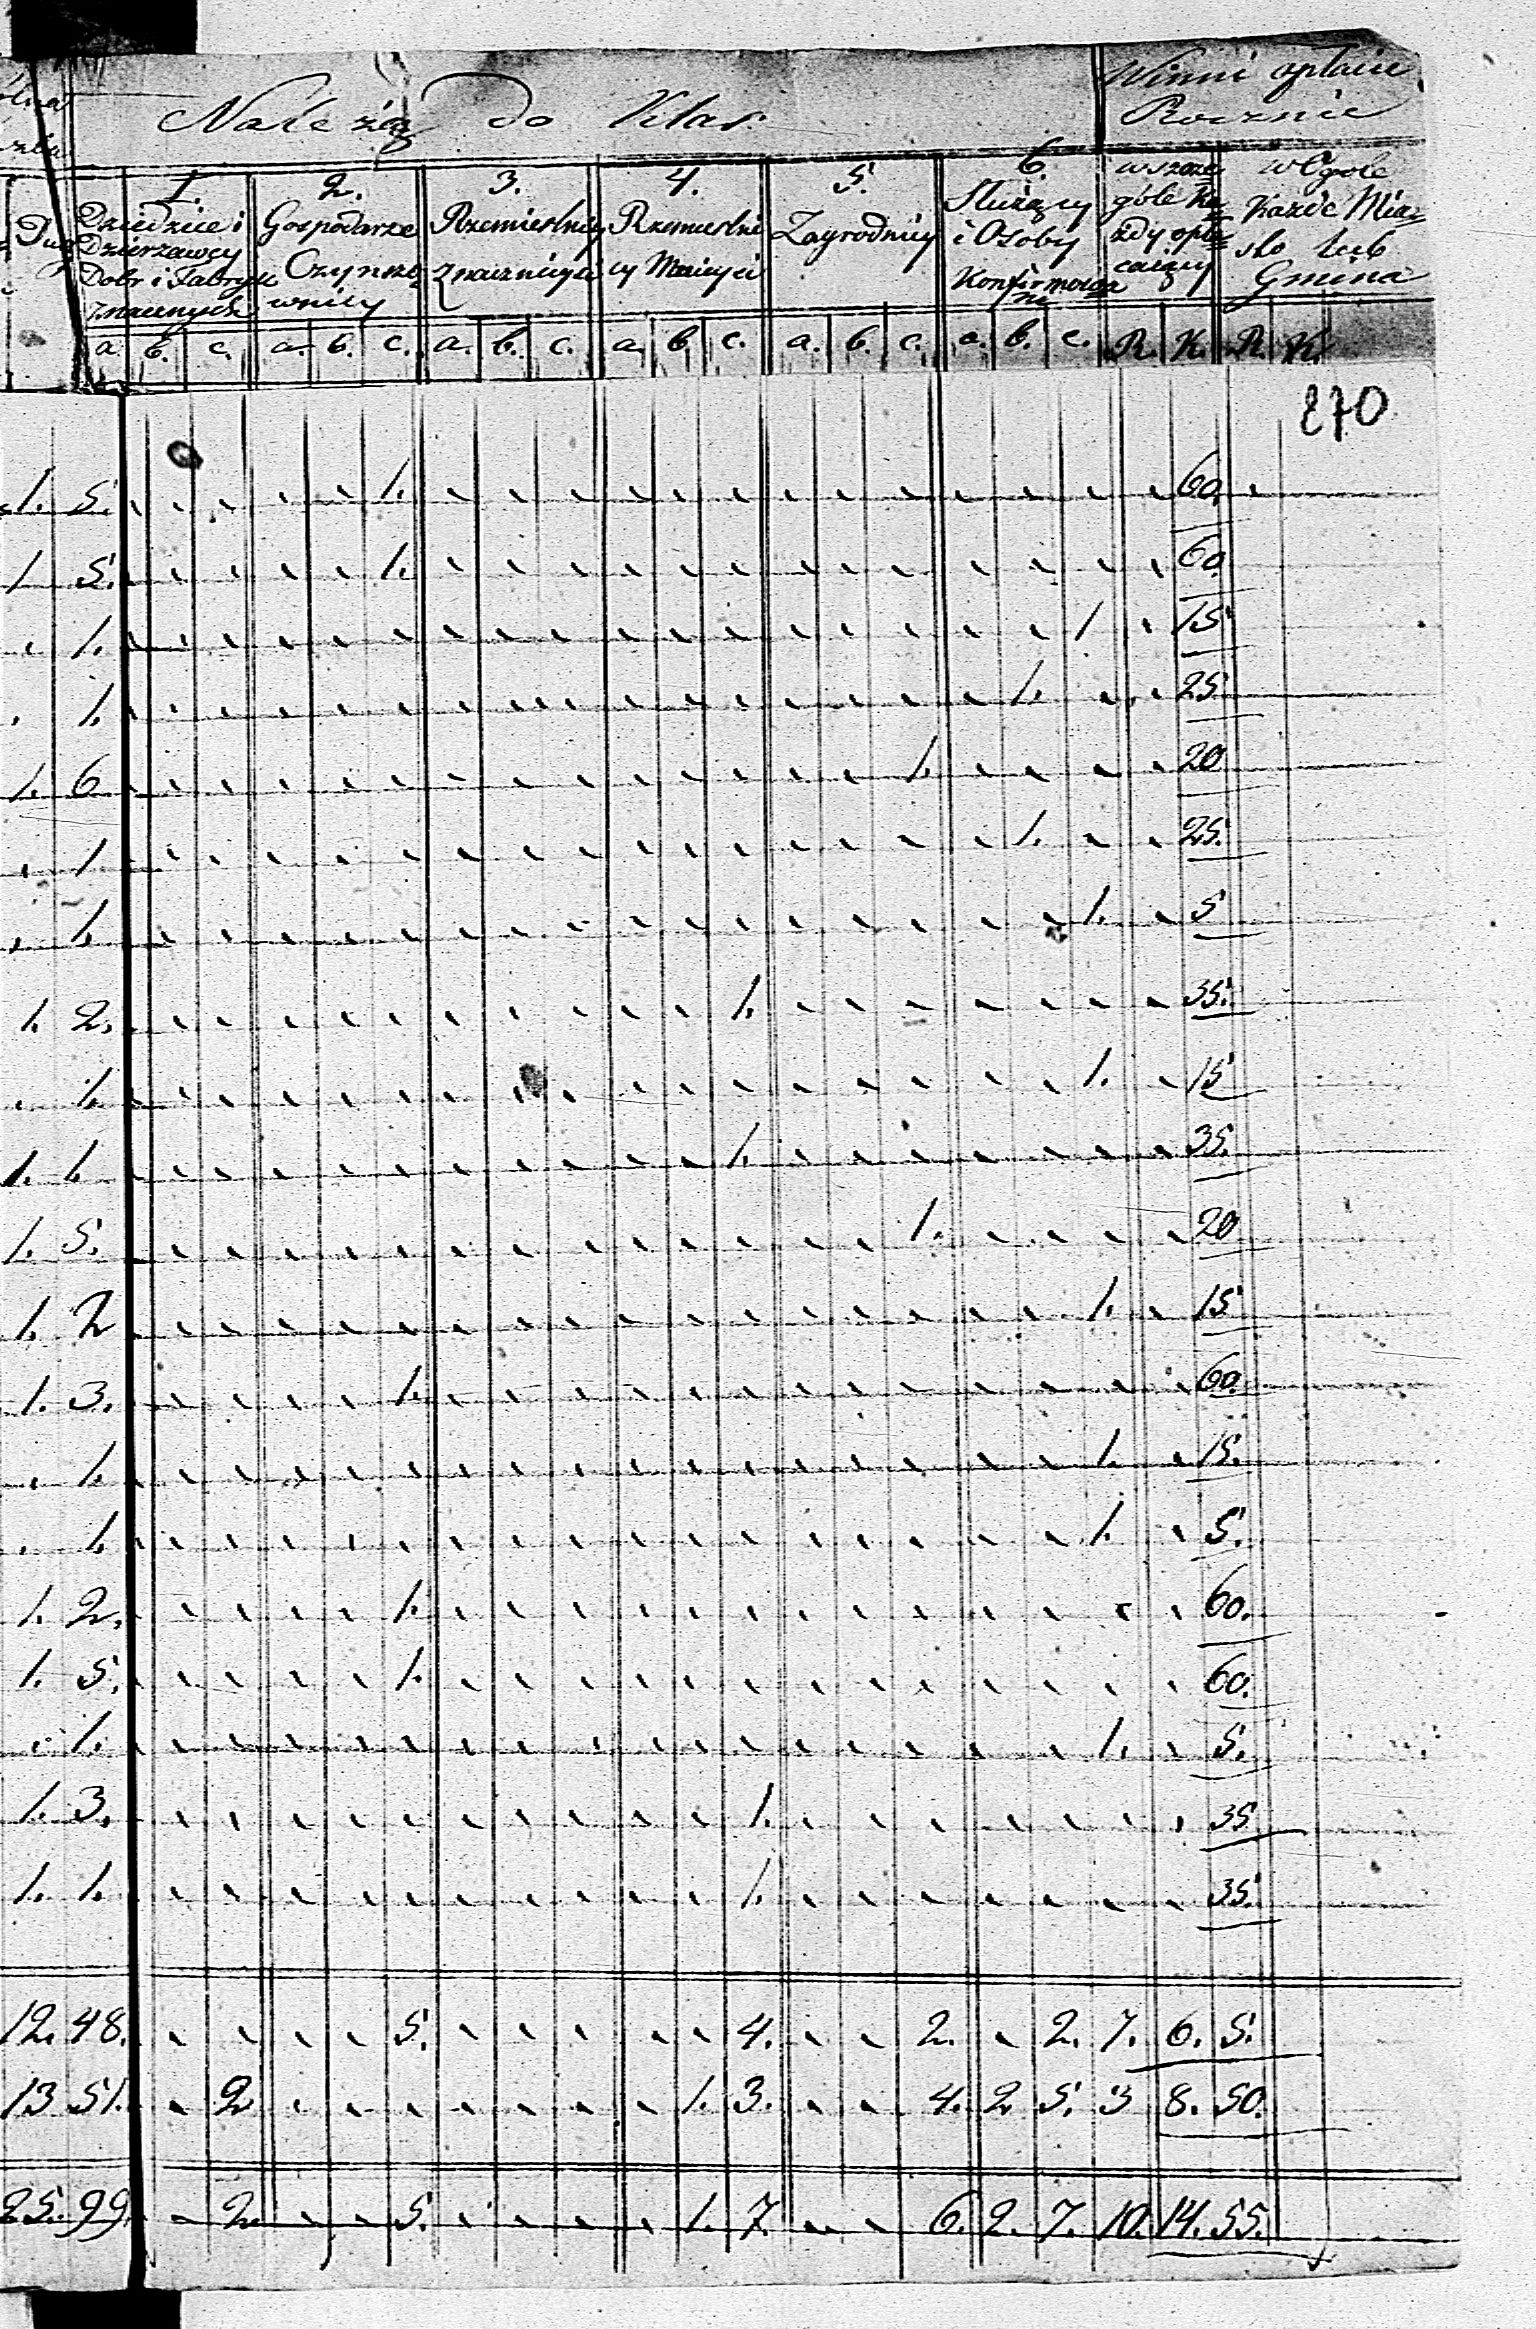 Należą do Klas
Winni opłacić
Rocznie
1. 2. 3. 4. 5. 6.
Dziedzice i Dzierżawcy Dobr i Fabryk znacznych
Gospodarze Czynszownicy
Rzemieslnicy znacznieysi
Rzemieslnicy Mnieysi
Zagrodnicy
Służący i Osoby
w szczegole każdy opłacaiący
w Ogole Każde Miasto lub Gmina
a. b. c. a. b. c. a. b. c. a. b. c. a. b. c. a. b. c. R. K. R. K.
270
1. 5. 1. 60.
1 5. 1. 60.
1. 1 15
1. 1. 25
1. 6 1. 20
1 1. 25.
1. 1. 5
1. 2. 1. 35.
1. 1. 15
1. 1. 1. 35.
1. 5. 1. 20
1. 2 1. 15
1. 3. 1. 60.
1. 1. 15.
1. 1. 5.
1. 2. 1. 60.
1. 5. 1. 60.
1. 1. 5.
1. 3. 1. 35
1. 1. 1. 35.
12. 48. 5. 4. 2. 2. 7. 6. 5.
13 51. 2 1. 3. 4. 2 5. 3 8. 50.
25. 99. 2. 5. 1. 7. 6. 2. 7. 10. 14. 55.